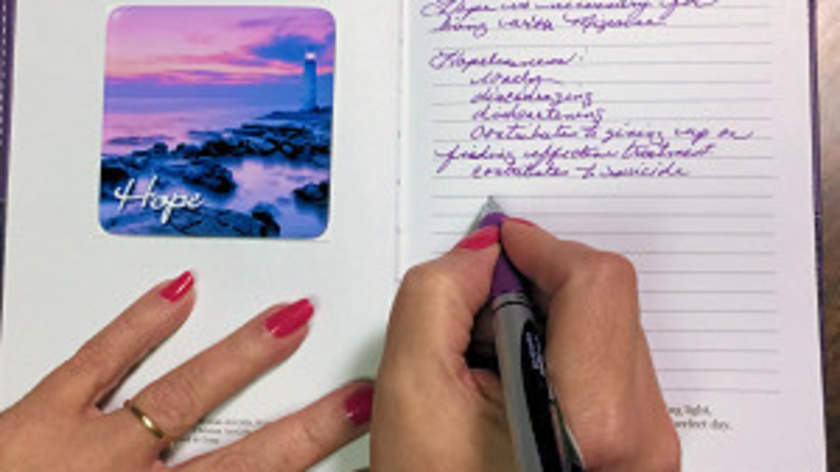 Hope
Hope is necessary for
living with Migraine
Hopelessness:
lonely
discouraging
disheartening
Contributes to giving up on
finding effective treatment
contributes to suicide
ng light,
perfect day.